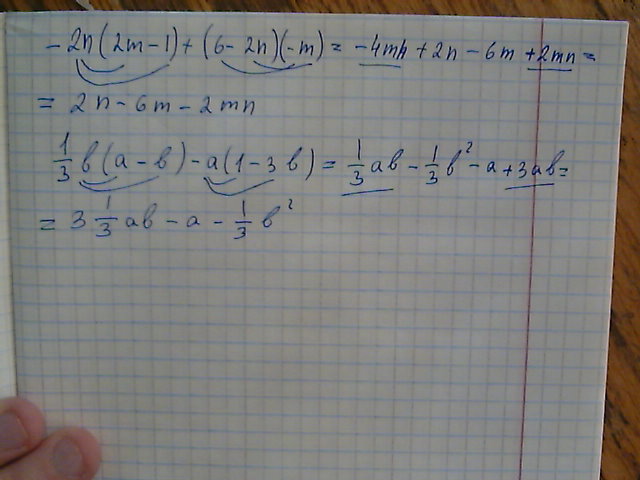 -2n(2m-1)+(6-2n)(-m)=-4mn+2n-6m+2mn=
=2n-6m-2mn
1/3 b(a-b)-a(1-3b)=1/3 ab-1/3 b²-a+3ab=
=3 1/3 ab-a-1/3 b²